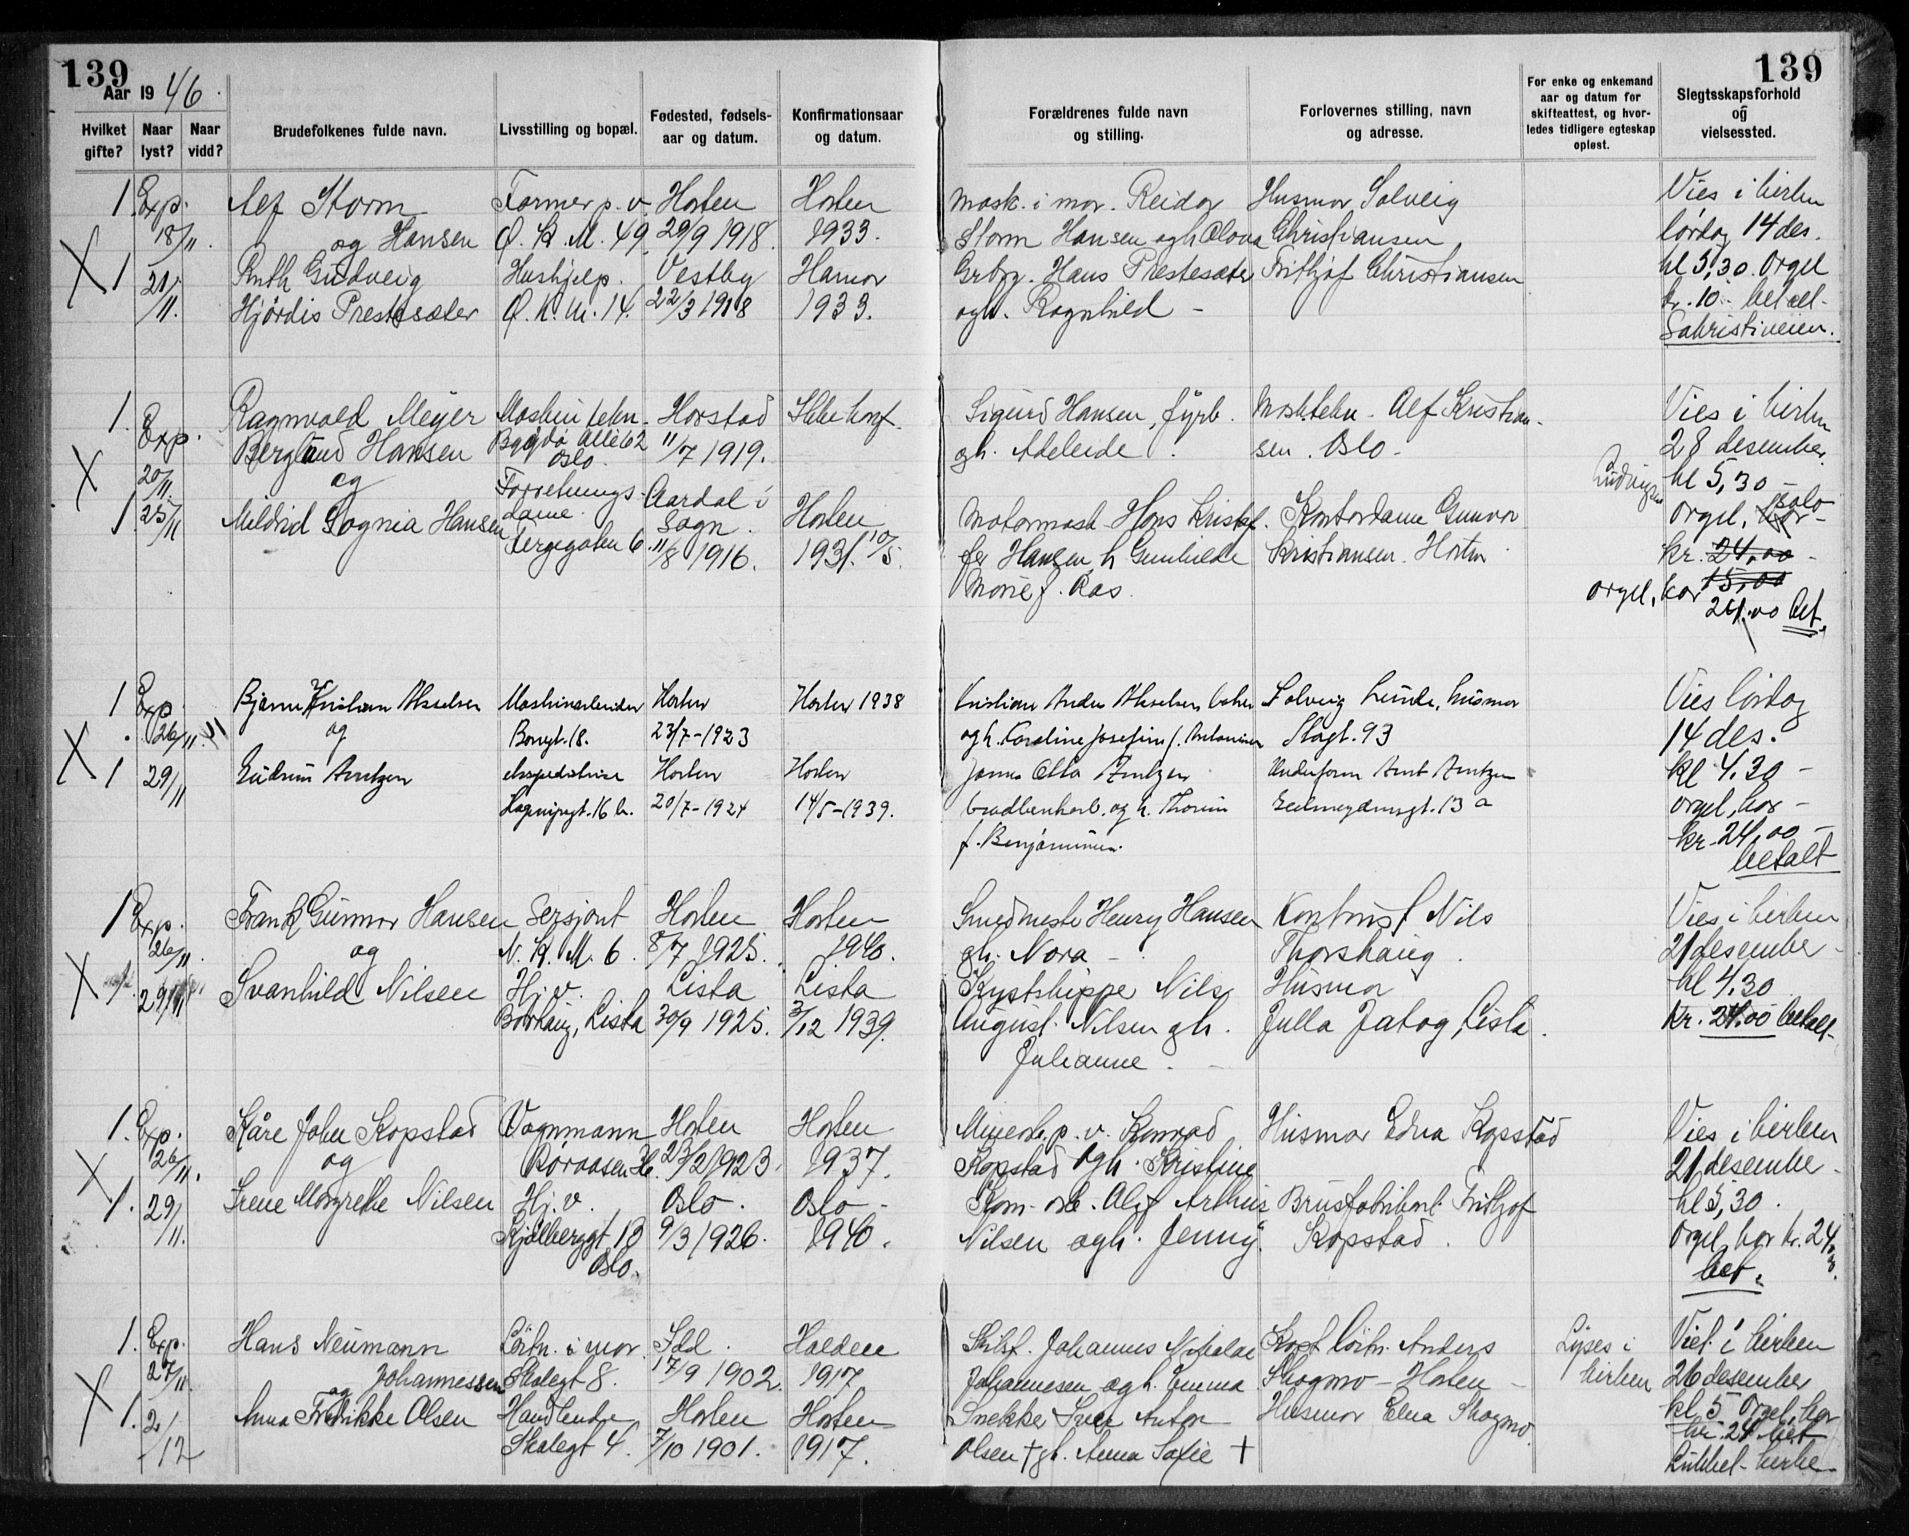 139
Aar 1946.
Hvilket gifte?
Naar lyst?
Naar vidd?
Brudefolkenes fulde navn.
Livsstilling og bopæl.
Fødested, fødsels-
aar og datum.
Konfirmationsaar
og datum.
139
Forældrenes fulde navn
og stilling.
Forlovernes stilling, navn
og adresse.
For enke og enkemand
aar og datum for
skifteattest, og hvor-
ledes tidligere egteskap
opløst.
Slegtsskapsforhold
og
vielsessted.
1. Exp. Alf Storm Former p. v. Horten Horten Mask. i mar. Reidar Husmor Solveig Vies i kirken
18/11. og Hansen Ø. K. M. 49. 29/9 1918. 1933. Storm Hansen ogh Christiansen lørdag 14 des.
X 1 21/11. Ruth Gudveig Hushjelp. Vestby Hamar Hans Prestesæter Frithjof Christiansen kl 5,30. Orgel
Hjørdis Prestesæter Ø. K. M. 14. 22/3 1918 1933. ogh. Ragnhild - kr. 10.- betalt-
Sakristiveien.
1. Exp. Ragnvald Meyer Maskintekn. Harstad Ikke konf. Sigurd Hansen, fyrb. Masktekn. Alf Kristian- Vies i kirken
Berglund Hansen Bygdø Allé 62 11/7 1919. gh. Adeleide. sen. Oslo. 28 desember.
X 20/11. og Oslo. kl 5,30 -
1 25/11 Mildrid Sognia Hansen Forretnings- Aardal i Horten Motormask. Hans Kristof- Kontordame Gunvor orgel, solo-
dame. Sogn. Kristiansen. Horten
Fergegaten 6. 11/8 1916. 1931. 10/5. fer Hansen h Gunhilde kr. 24,00 -
Marie f. Aas. orgel, kor 15,00
24.00 bet.
1 Exp. Bjarne Kristian Akselsen Maskinarbeider Horten Horten 1938 Kristian Anders Akselsen Solveig Lunde, husmor Vies lørdag
26/11. og Borregt. 18. 23/7-1923 ogh. Karoline Josefine f. Antonisen Slagt. 93 14 des.
X 1 29/11 Gudrun Arntzen ekspeditrise Horten Horten Otto Arntzen Underform Arnt Arntzen kl 4.30 -
16 b. 20/7-1924 14/5-1939. og h. 13 a orgel, kor -
f. Benjaminsen. kr. 24,00 -
betalt
1 Exp. Frank Gunnar Hansen Sersjant Horten Horten Smedmester Henry Hansen Kontrist Nils Vies i kirken
26/11. og N. K. M. 6. 8/7 1925. 1940. gh. Nora - Thorshaug. 21 desember -
X 1. 29/11 Svanhild Nilsen Hj. v. Lista Lista Kystskipper Nils Husmor kl 4,30
Borhaug, Lista 30/9 1925. 3/12 1939. August. Nilsen gh. Julla Jatog, Lista. kr. 24.00 betalt
Julianne.
1. Exp. Kåre John Kopstad Vognmann Horten Horten Minearb. p. v. Konrad Husmor Edna Kopstad Vies i kirken
X 26/11. og Boraasen 36. 23/2 1923. 1937. Kopstad ogh. Kristine 21 desember -
1. 29/11. Irene Margrethe Nilsen Hj. v. Oslo. Oslo - Alf Arthur Brusfabrikant Frithjof kl 5,30.
Kjølberggt. 13 9/3 1926. 1940. Nilsen ogh. Jenny. Kopstad. Orgel, kor kr. 24,00.
Oslo. bet.
1. Exp. Hans Neumann Løitn. i mar. Idd. Halden Johannes Nikolai Kapt. løitn. Anders Lyses i Viet i kirken
27/11. Johannessen Skalegt 8. 17/9 1902. 1917 Johannesen ogh. Emma Skogmo - Horten - kirken 26 desember
X og
1. 2/12 Anna Fredrikke Olsen Horten Horten Snekker Iver Anton Husmor Elna Skogmo. kl 5 Orgel, kor
Skalegt 4. 7/10 1901. 1917. Olsen † gh. Anna Sofie † kr. 24 bet